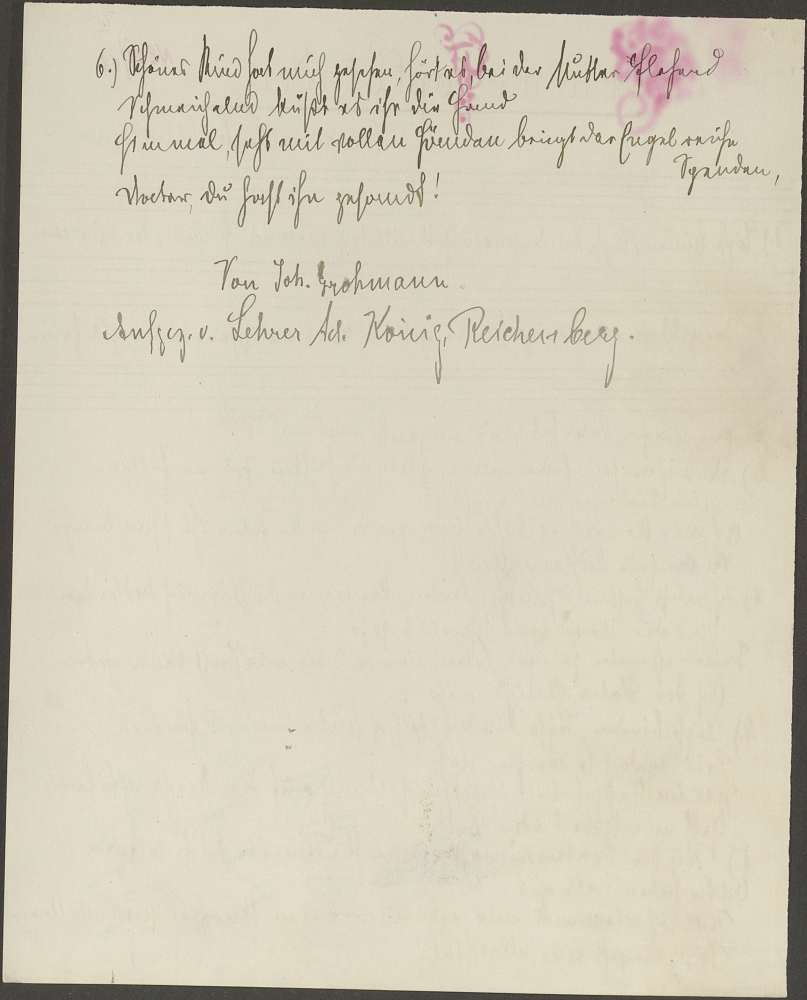 6.) Schönes Kind hat mich gesehen, hört es, bei der Mutter flehend
Schmeichelnd küßt es ihr die Hand
Himmel, seht mit vollen Händen bringt der Engel reiche
Spenden,
Vater, du hast ihn gesandt!
Von Joh. Grohmann.
Aufgez. v. Lehrer Ad. König, Reichenberg.